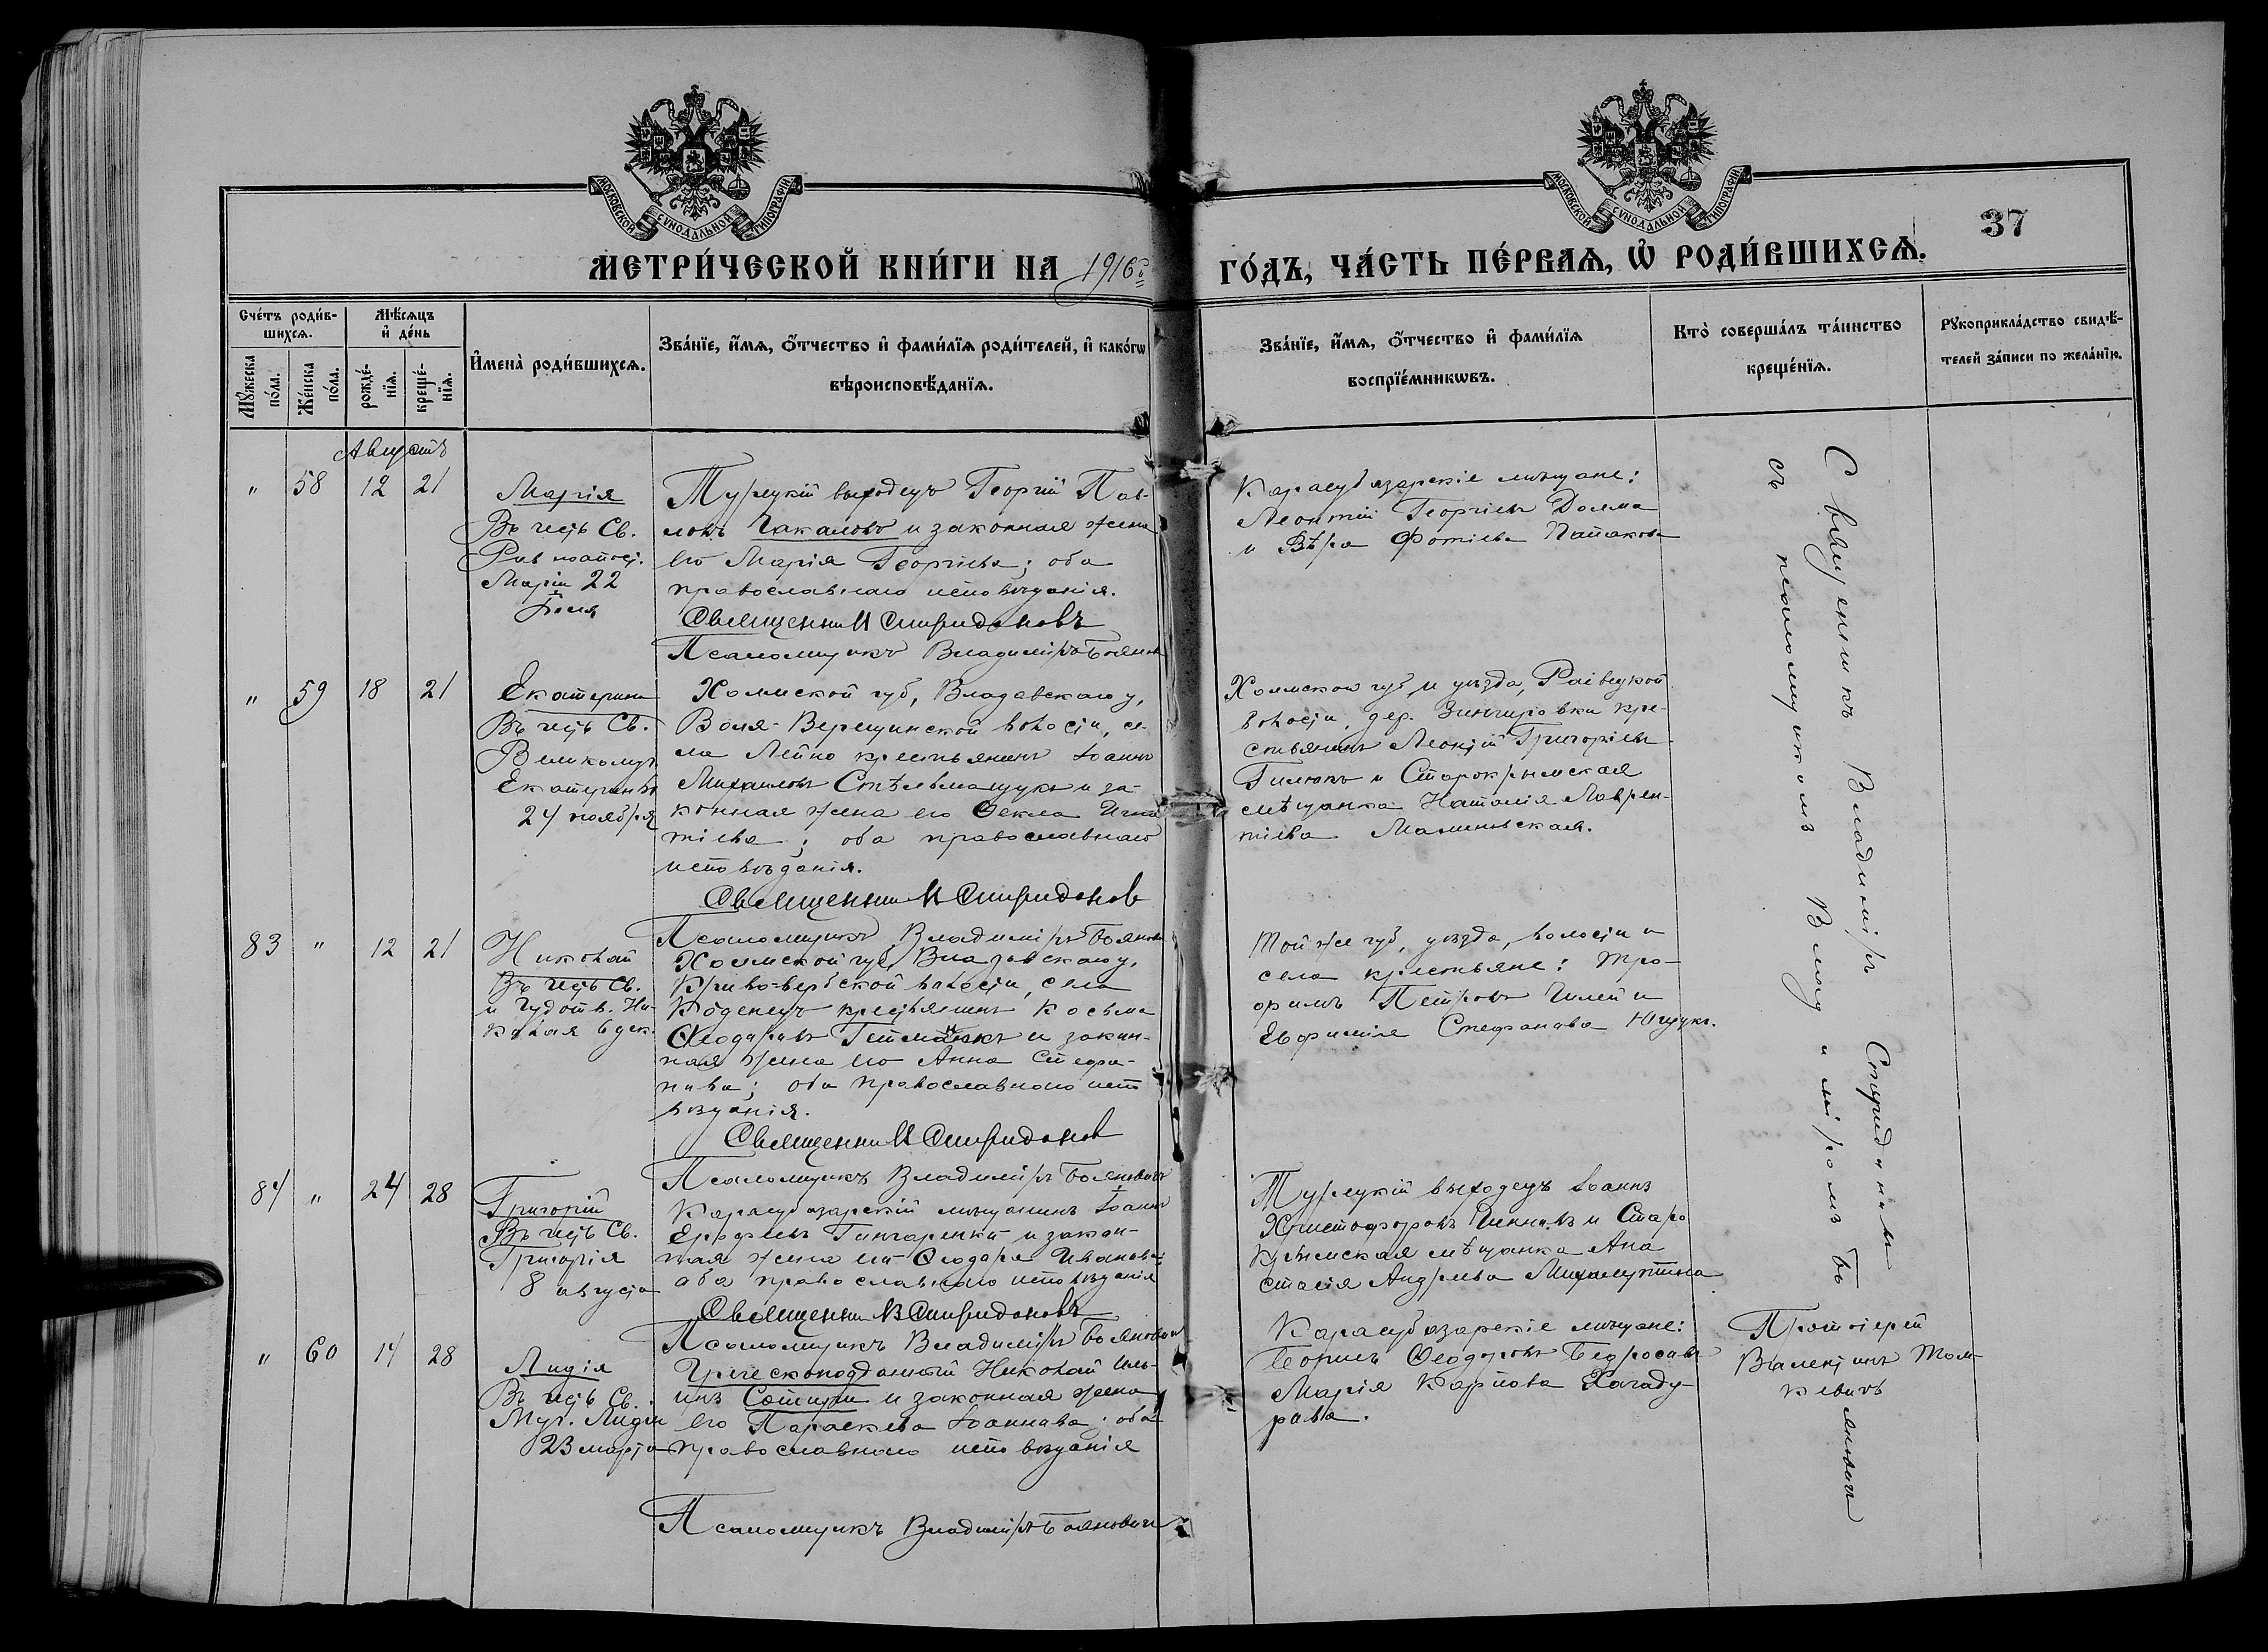 МОСКОВСКОЙ СУНОДАЛЬНОЙ ТИПОГРАФІИ
МОСКОВСКОЙ СУНОДАЛЬНОЙ ТИПОГРАФІИ
37
МЕТРИ́ЧЕСКОЙ КНИ́ГИ НА 1916 й ГО́ДЪ, ЧА́СТЬ ПЕ́РВАѦ, Ѡ҆ РОДИ́ВШИХСѦ.
Счéтъ роди́в-
шихсѧ.
Мꙋ́жеска
пóла.
Жéнска
пóла.
Мѣ́сѧцъ
и҆ дéнь
рождé-
нїѧ.
крещé-
нїѧ.
И҆менà роди́вшихсѧ.
Звáнїе, и҆́мѧ, ѻ҆́тчество и҆ фами́лїѧ роди́телей, и҆ какóгѡ
вѣроисповѣ́данїѧ.
Звáнїе, и҆́мѧ, ѻ҆́тчество и҆ фами́лїѧ
воспрїéмникѡвъ.
Ктò совершáлъ тáинство
крещéнїѧ.
Рꙋкоприклáдство свидѣ́-
телей зáписи по желáнїю.
Августъ
" 58 12 21
Марія
Въ честь Св.
Равноапост.
Маріи 22
Іюля
Турецкій выходецъ Георгій Пав-
ловъ Чакаловъ и законная жена
его Марія Георгіева; оба
православнаго исповѣданія.
Священникъ В Спиридоновъ
Псаломщикъ Владиміръ Боянович
Карасубазарскіе мѣщане:
Леонтій Георгіевъ Долма
и Вѣра Фотіева Папакова
Священникъ Владиміръ Спиридоним
съ псаломщикомъ Владиміромъ Бояновичи
" 59 18 21
Екатерина
Въ честь Св.
Великомуч.
Екатерины
24 ноября
Холмской губ, Владавскаго у,
Воля-Верещинской волости, се-
ла Лейно крестьянинъ Іоаннъ
Михаиловъ Стѣльмащукъ и за-
конная жена его Ѳекла Игна
тіева; оба православнаго
исповѣданія.
Священникъ В Спиридонов
Псаломщикъ Владиміръ Боянович
Холмской губ, и уѣзда, Раівецкой
волости, дер. Зингировки кре-
стьянинъ Леонтій Григоріевъ
Гилюкъ и Старокрымская
мѣщанка Наталія Лаврен-
тіева Малиновская.
83 " 12 21
Николай
Въ честь Св.
и Чудотв. Ни-
колая 6 дек.
Холмской губ, Владавскаго у,
Криво-вербской волости, села
Коденецъ крестьянинъ Косьма
Ѳеодоровъ Гейманюкъ и закон-
ная жена его Анна Стефа-
нова; оба православнаго испо
вѣданія.
Священникъ В Спиридонов
Псаломщикъ Владиміръ Боянович
Той же губ, уѣзда, волости и
села крестьяне: Тро-
фимъ Петровъ Чилей и
Евфимія Стефанова Ющукъ.
84 " 24 28
Григорій
Въ честь Св.
Григорія
8 августа
Карасубазарскій мѣщанинъ Іоаннъ
Ерофеевъ Гончаренко и закон-
ная жена его Ѳеодора Иванова;
оба православнаго исповѣданія
Священникъ В Спиридоновъ
Псаломщикъ Владиміръ Боянович
Турецкій выходецъ Іоаннъ
Христофоровъ и Старо
Крымская мѣщанка Ана
стасія Андреева
" 60 14 28
Лидія
Въ честь Св.
Муч. Лидіи
23 марта
Греческоподданный Николай Иль-
инъ Сотири и законная жена
его Параскева Іоаннова; оба
православнаго исповѣданія
Псаломщикъ Владиміръ Боянович
Карасубазарскіе мѣщане:
Георгій Ѳеодоровъ
Марія Карпова Хачаду-
рова.
Протоіерей
Валентинъ Том-
кевичъ